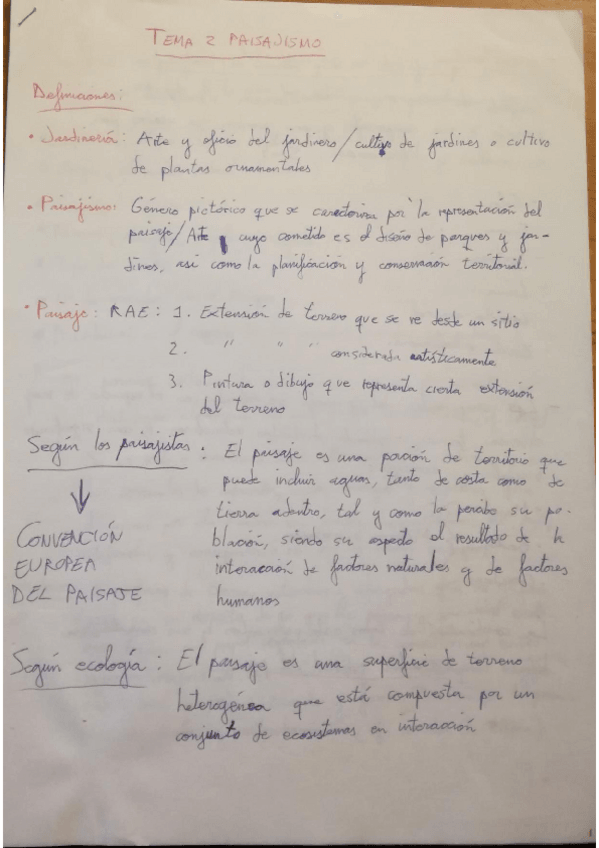 TEMA 2 PAISAJISMO
Definiciones:
• Jardinería: Arte y oficio del jardinero/cultivo de jardines o cultivo
de plantas ornamentales
• Paisajismo: Género pictórico que se caracteriza por la representación del
paisaje/Arte cuyo cometido es el diseño de parques y jar-
dines, así como la planificación y conservación territorial.
• Paisaje: RAE: 1. Extensión de terreno que se ve desde un sitio
2. " " " considerada artísticamente
3. Pintura o dibujo que representa cierta extensión
del terreno
Según los paisajistas: El paisaje es una porción de territorio que
puede incluir aguas, tanto de costa como de
tierra adentro, tal y como la percibe su po-
blación, siendo su aspecto el resultado de la
interacción de factores naturales y de factores
humanos
↓
CONVENCIÓN
EUROPEA
DEL PAISAJE
Según ecología: El paisaje es una superficie de terreno
heterogénea que está compuesta por un
conjunto de ecosistemas en interacción
1